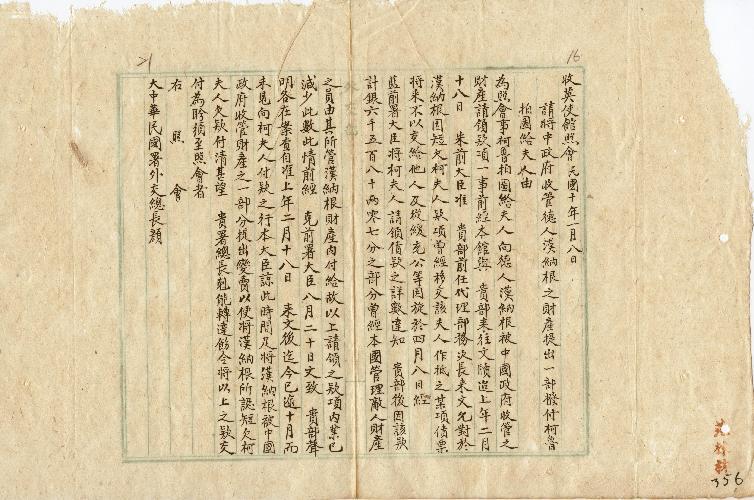 16
收英使館照會 民國十年一月八日
請將中政府收管德人漢納根之財產提出一部撥付柯魯
柏國給夫人由
為照會事柯魯柏國給夫人向德人漢納根被中國政府收管之
財產請領欵項一事前經本館與 貴部來往文牘迨上年二月
十八日 朱前大臣准 貴部前任代理部務次長來文允對於
漢納根因短欠柯夫人欵項曾經移交該夫人作抵之某項債票
將來不以交給他人及從緩充公等因旋於四月八日經
藍前署大臣將柯夫人請領債欵之詳數達知 貴部後因該欵
計銀六千五百八十兩零七分之部分曾經本國管理敵人財產
21
之員由其所管漢納根財產內付給故以上請領之欵項內業已
減少此數此情前經 克前署大臣八月二十日文致 貴部聲
明各在案查自准上年二月十八日 來文後迄今已逾十月而
未見向柯夫人付欵之行本大臣諒此時間及將漢納根被中國
政府收管財產之一部分提出變賣以便將漢納根所認短欠柯
夫人欠欵付清甚望 貴署總長剋能轉達飭令將以上之欵交
付為盼須至照會者
右 照 會
大中華民國署外交總長顏
356